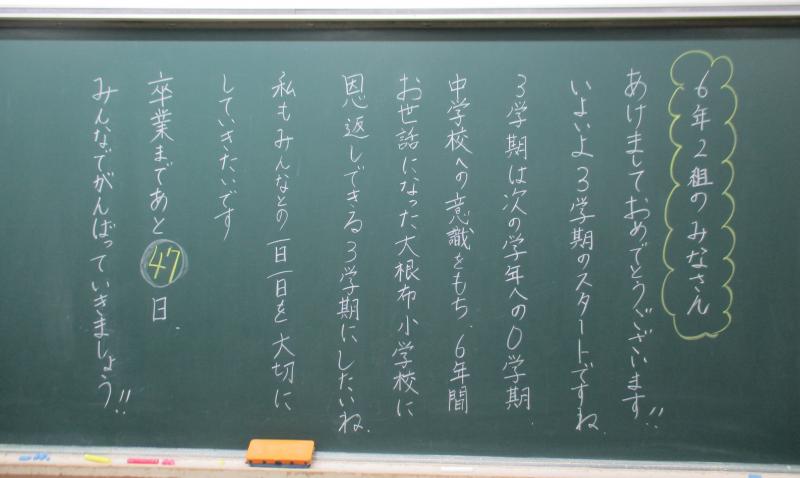 6年2組のみなさん
あけましておめでとうございます!!
いよいよ3学期のスタートですね。
3学期は次の学年への0学期。
中学校への意識をもち、6年間
お世話になった大根布小学校に
恩返しできる3学期にしたいね。
私もみんなとの一日一日を大切に
していきたいです
卒業まであと47日。
みんなでがんばっていきましょう!!